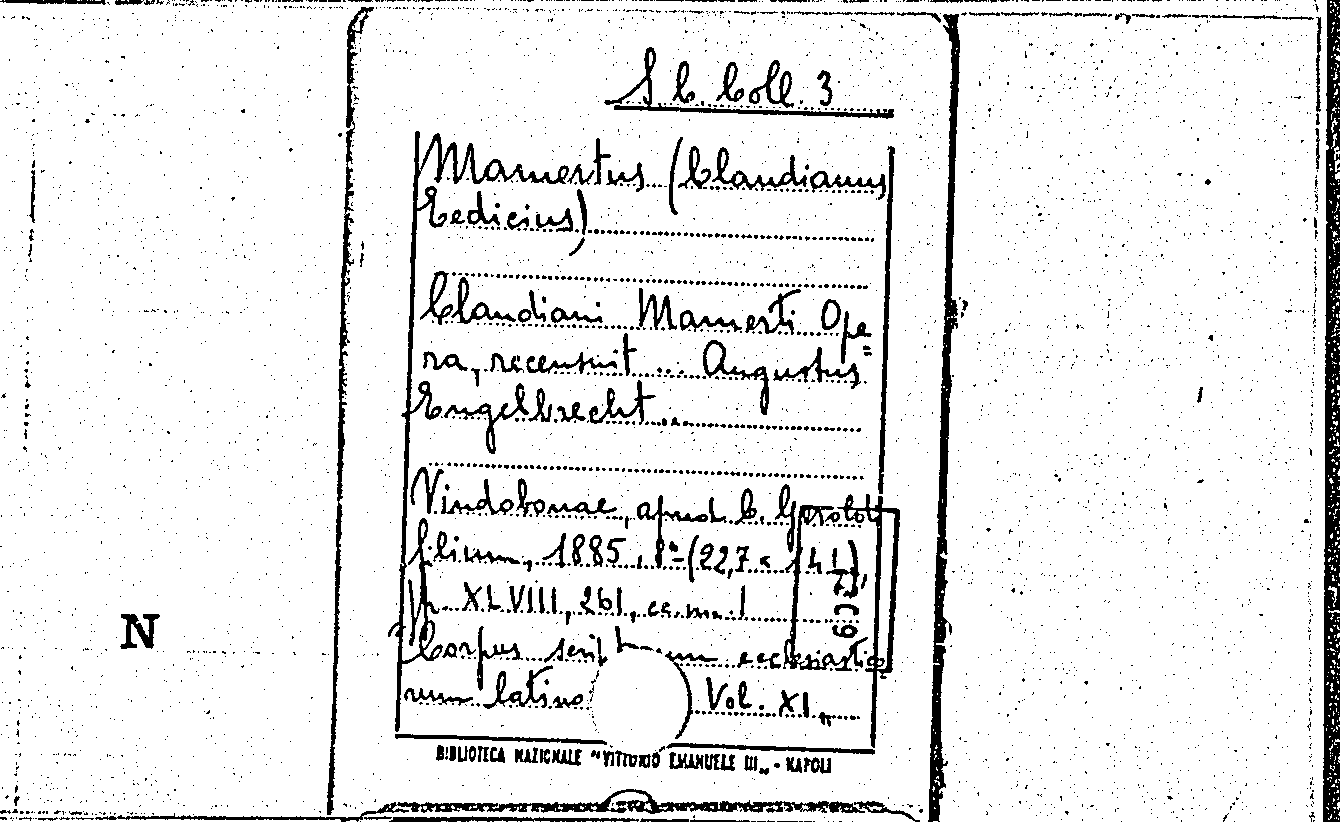 S. C. Coll. 3
Mamertus (Claudianus
Ecdicius)
Claudiani Mamerti Ope
ra, recensuit ... Augustus
Engelbrecht ...
Vindobonae, apud C. Geroldi
filium, 1885, 8°-(22,7 × 14
p. XLVIII, 261, cc. m. 1
Corpus ecclesiastico
rum latino Vol. XI„
N
BIBLIOTECA NAZIONALE "VITTORIO EMANUELE III„ - NAPOLI